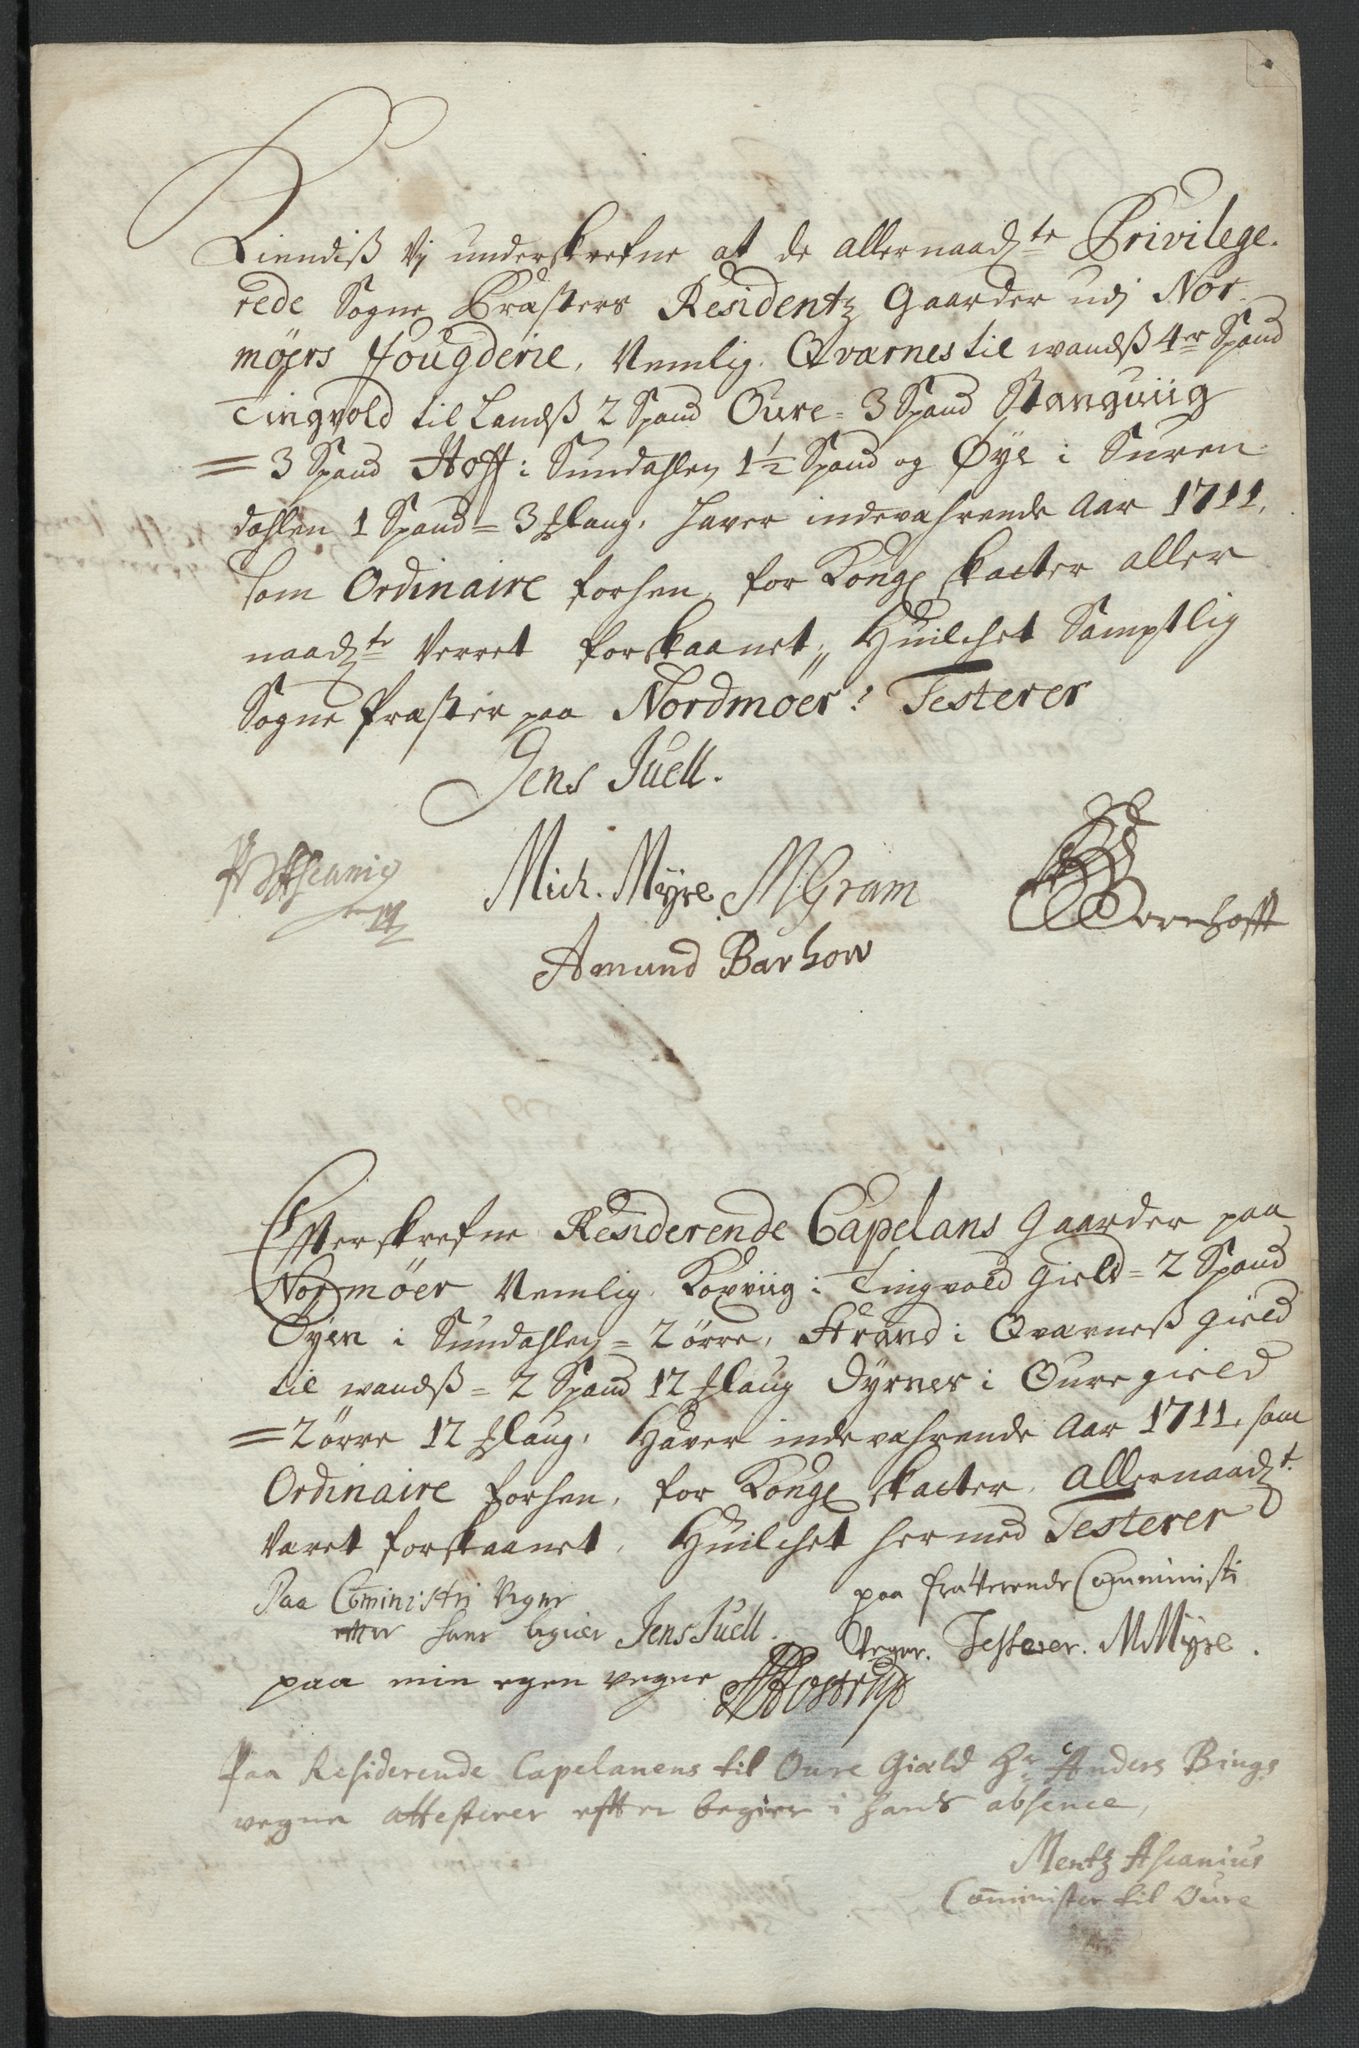 Kiendiß Vj underskrefne at de allernaadte Privilege-
rede Sogne Præsters Residentz Gaarder udj Nor-
møers Fougderie, Nemlig. Qvarnes til wandß 4er Spand
Tingvold til Landß 2 Spand Oure = 3 Spand Stanguiig
= 3 Spand Hoff i Sundahlen 1½ Spand og Øye i Suren-
dahlen 1 Spand = 3 Øang, haver indevahrende Aar 1711,
som Ordinaire forhen, for Kongl skatter aller
naadte Verret forskaanet, Huilchet Samptlig
Sogne Præster paa Nordmøer: Testerer
Jens Juell.
Ascanius Mich. Myre MGram
Amund Barhow
Efterskrefne Residerende Capelans gaarder paa
Normøer Nemlig. Koxviig i Tingvold gield = 2 Spand
Øyen i Sundahlen = 2 ørre, Strand i Qvarneß gield
til wandß = 2 Spand 12 Maug Dyrnes i Oure gield
= 2 ørre 12 Maug. Haver indevahrende Aar 1711, som
Ordinaire forhen, for Kongl skatter, Allernaadt.
Varet forskaanet, Huilchet hermed Testerer
Paa Cōministri Vegne
efter hans begier Jens Juell.
paa fraværende Comministri
Vegne. Testerer. MMyre.
paa min egen vegne Hostrup
Paa Residerende Capelanens til Oure Giæld Hr Anders Bings
vegne attesterer efter begier i hans absence,
Mentz Ascanius
Cōminister til Oure